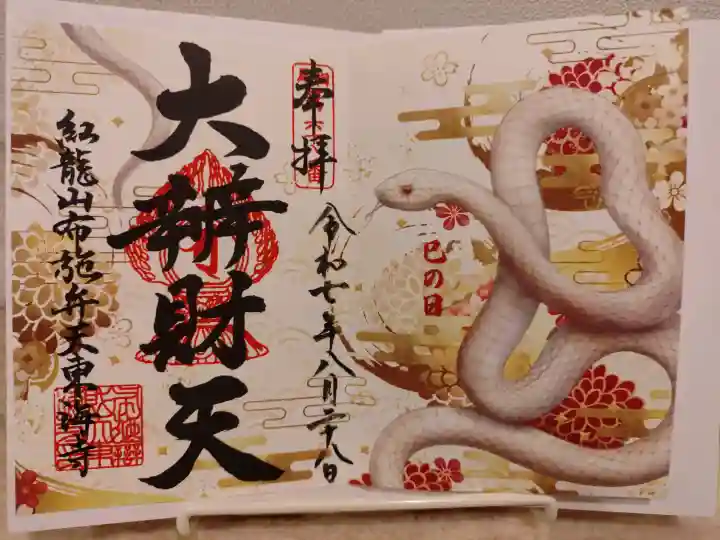 巳の日
奉拝
令和七年八月二十八日
大辨財天
紅龍山布施弁天東海寺